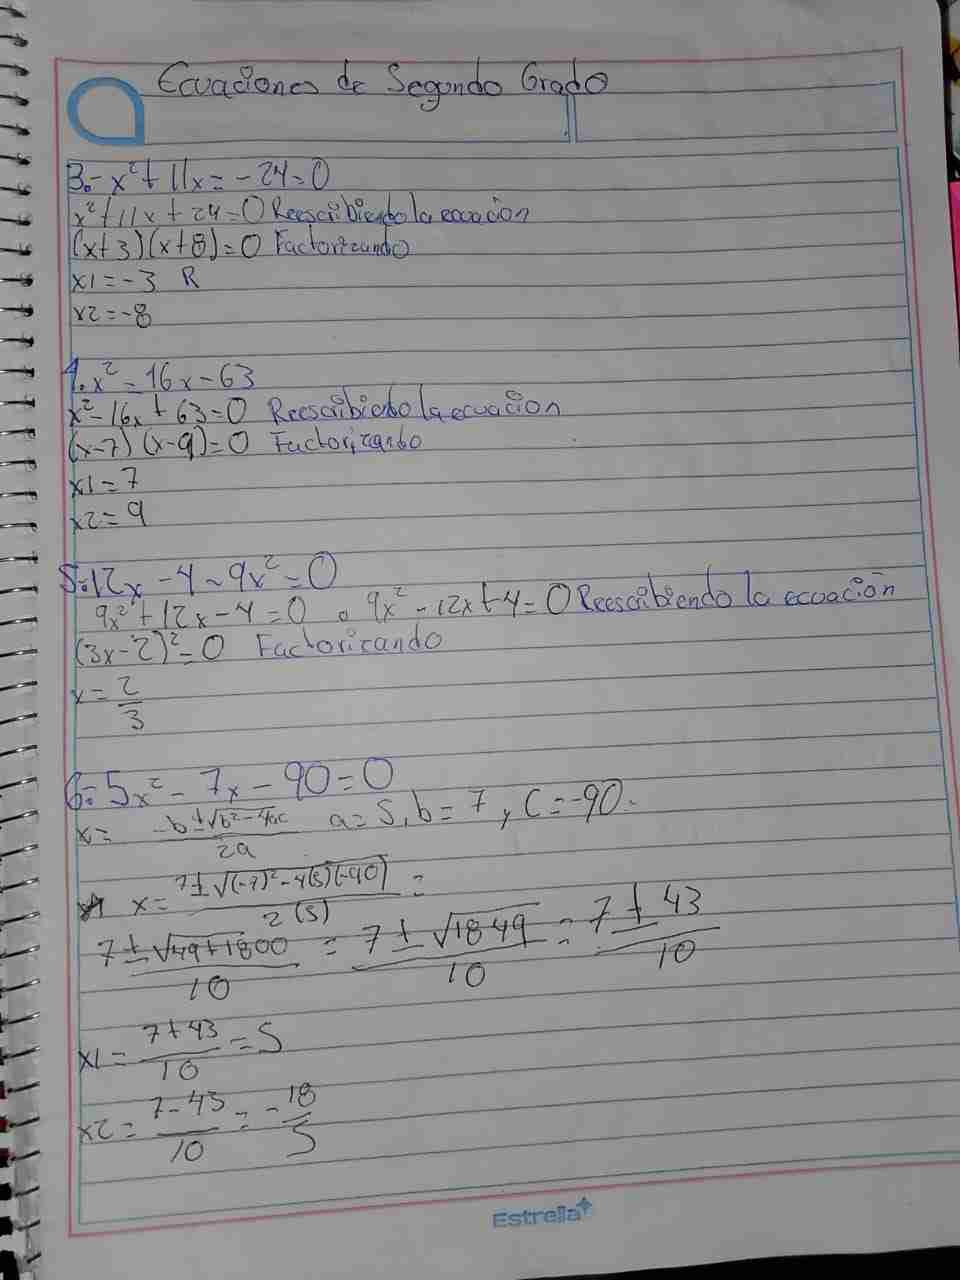 Ecuaciones de Segundo Grado
3.- x² + 11x = -24=0
x²+11x+24=0 Reescribiendo la ecuación
(x+3)(x+8)=0 Factorizando
x1=-3 R
x2=-8
4. x² = 16x-63
x²-16x+63=0 Reescribiendo la ecuacion
(x-7)(x-9)=0 Factorizando
x1=7
x2=9
5.-12x-4-9x²=0
9x²+12x-4=0 o 9x²-12x+4=0 Reescribiendo la ecuación
(3x-2)²=0 Factorizando
x=2/3
6- 5x²-7x-90=0
x= -b±√b²-4ac/2a a=5, b=7, y C=-90.
x= 7±√(-7)²-4(5)(-90)/2(5) =
7±√49+1800/10 = 7±√1849/10 = 7±43/10
x1= 7+43/10 =5
x2= 7-43/10 = -18/5
Estrella